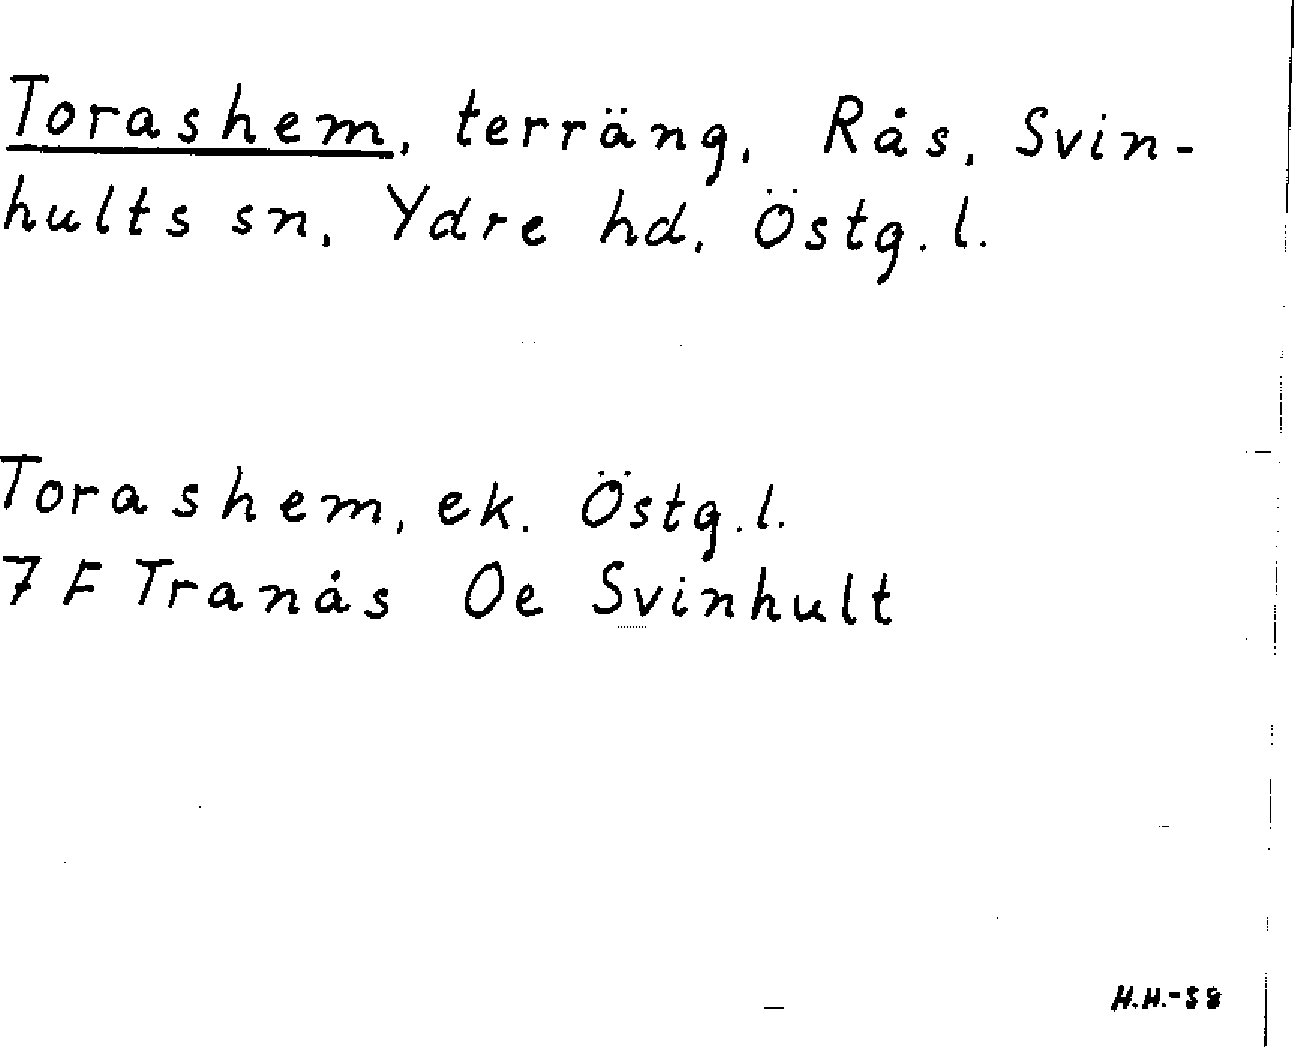 Torashem, terräng, Rås, Svin-
hults sn, Ydre hd, Östg. l.
Torashem, ek. Östg. l.
7 F Tranås Oe Svinhult
H.H.-58